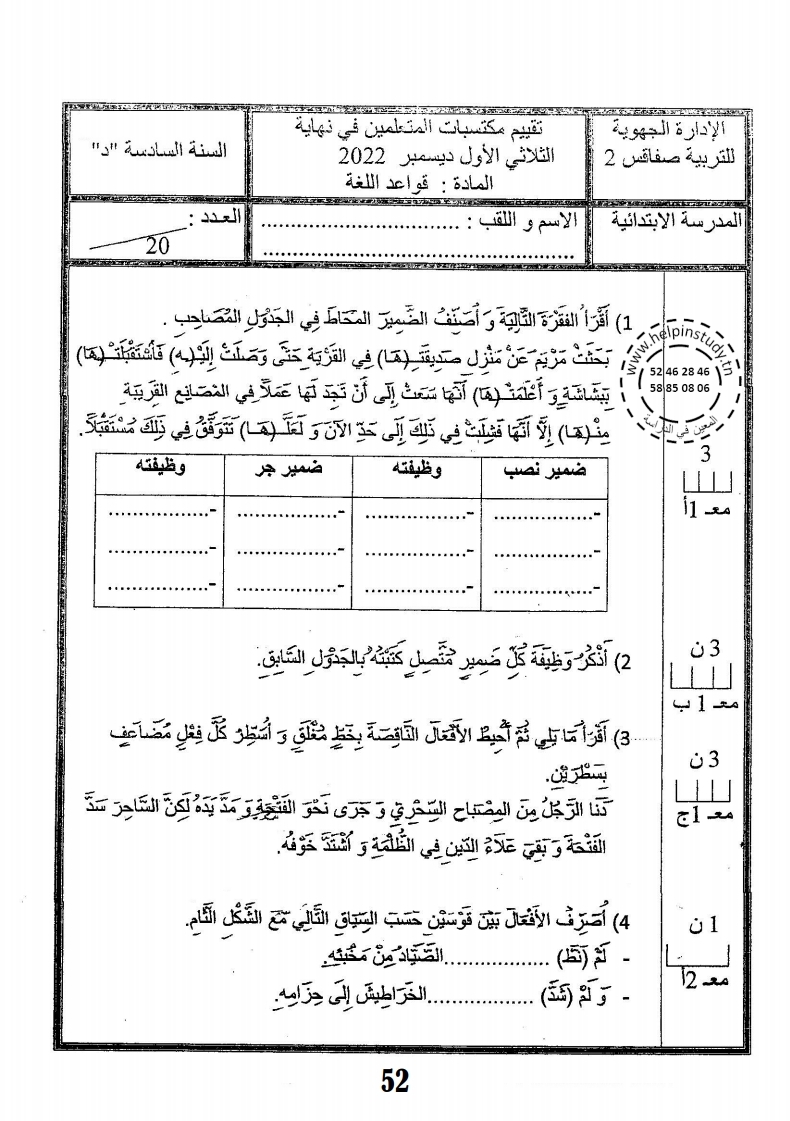 الإدارة الجهوية
للتربية صفاقس 2
تقييم مكتسبات المتعلمين في نهاية
الثلاثي الأول ديسمبر 2022
المادة : قواعد اللغة
السنة السادسة "د"
المدرسة الابتدائية
الاسم و اللقب : ................................
..................................................
العدد :
20
1) أَقْرَأُ الفَقْرَةَ التَّالِيَةَ وَ أُصَنِّفُ الضَّمِيرَ المُحَاطَ فِي الجَدْوَلِ المُصَاحِبِ .
بَحَثَتْ مَرْيَمُ عَنْ مَنْزِلِ صَدِيقَتِـ(ـهَا) فِي القَرْيَةِ حَتَّى وَصَلَتْ إِلَيْـ(ـهِ) فَاسْتَقْبَلَتْـ(ـهَا)
بِبَشَاشَةٍ وَ أَعْلَمَتْـ(ـهَا) أَنَّهَا سَعَتْ إِلَى أَنْ تَجِدَ لَهَا عَمَلاً فِي المَصَانِعِ القَرِيبَةِ
مِنْـ(ـهَا) إِلاَّ أَنَّهَا فَشِلَتْ فِي ذَلِكَ إِلَى حَدِّ الآنَ وَ لَعَلَّـ(ـهَا) تَتَوَفَّقُ فِي ذَلِكَ مُسْتَقْبَلًا.
www.helpinstudy.tn
52 46 28 46
58 85 08 06
المعين في الدراسة
3
معـ 1أ
ضمير نصب | وظيفته | ضمير جر | وظيفته
-................. | -................. | -................. | -.................
-................. | -................. | -................. | -.................
-................. | -................. | -................. | -.................
2) أَذْكُرُ وَظِيفَةَ كُلِّ ضَمِيرٍ مُتَّصِلٍ كَتَبْتُهُ بِالجَدْوَلِ السَّابِقِ.
3 ن
معـ 1 ب
3) أَقْرَأُ مَا يَلِي ثُمَّ أُحِيطُ الأَفْعَالَ النَّاقِصَةَ بِخَطٍّ مُغْلَقٍ وَ أُسَطِّرُ كُلَّ فِعْلٍ مُضَاعَفٍ
بِسَطْرَيْنِ.
دَنَا الرَّجُلُ مِنَ المِصْبَاحِ السِّحْرِيِّ وَ جَرَى نَحْوَ الفَتْحَةِ وَ مَدَّ يَدَهُ لَكِنَّ السَّاحِرَ سَدَّ
الفَتْحَةَ وَ بَقِيَ عَلَاءُ الدِّينِ فِي الظُّلْمَةِ وَ اُشْتَدَّ خَوْفُهُ.
3 ن
معـ 1ج
4) أُصَرِّفُ الأَفْعَالَ بَيْنَ قَوْسَيْنِ حَسَبَ السِّيَاقِ التَّالِي مَعَ الشَّكْلِ التَّامِ.
- لَمْ (نَطَّ) ..................الصَّيَّادُ مِنْ مَخْبَئِهِ.
- وَ لَمْ (شَدَّ) ..................الخَرَاطِيشَ إِلَى حِزَامِهِ.
1 ن
معـ 2أ
52